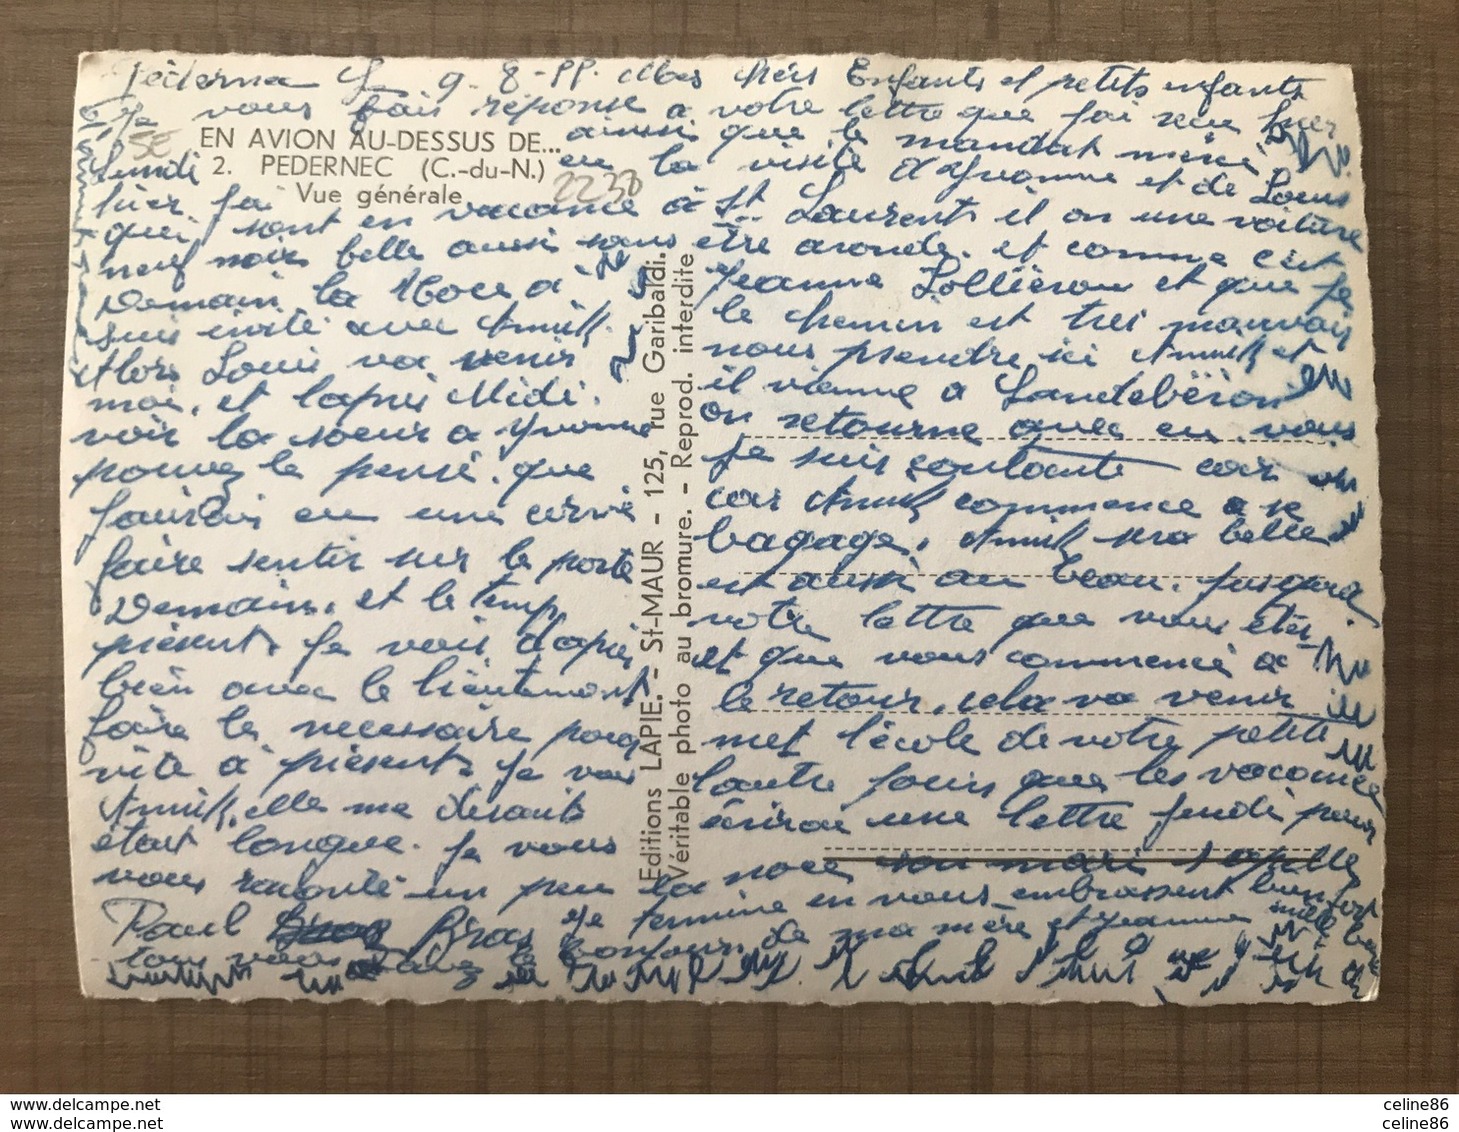 Pédernec 9-8- Mes chérs Enfants et petits enfants
Je vous fais réponse a votre lettre que j'ai reçu hier
ainsi que le mandat merci
EN AVION AU-DESSUS DE...
2. PEDERNEC (C.-du-N.)
Vue générale
2238
Lundi
eu la visite d'Yvonne et de Louis
hier j'ai
qui sont en vacance à St Laurent et on une voiture
neuf noir belle aussi sans être aronde. et comme c'est
Demain la Noce a
Jeanne et que je
suis invité avec Annick
le chemin est tres mauvais
Alors Louis va venir
nous prendre ici Annick et
moi, et l'après Midi.
il vienne a
voir la soeur a Yvonne
on retourne avec eu vous
pouvez le pensé que
je suis contante car
car Annick commence a se
faire sentir sur le porte
bagage. Annick sera belle
Demain. et le temp
est aussi au beau. jusqu'a
présent. Je vois d'après
votre lettre que vous êtes
bien avec le lieutenant
et que vous commencé a
faire le necessaire pour
le retour, cela va venir
vite a présent. Je vois
met l'école de votre petite
Annick, elle me disait
l'autre jours que les vacance
était longue. Je vous
écrirai une lettre jeudi pour
vous raconté un peu la noce son mari s'apelle
Paul Bras Je termine en vous embrassent bien fort
tous vous avez le bonjour de ma mère et Jeanne
Editions LAPIE. - St-MAUR - 125, rue Garibaldi.
Véritable photo au bromure. - Reprod. interdite
celine86
celine86